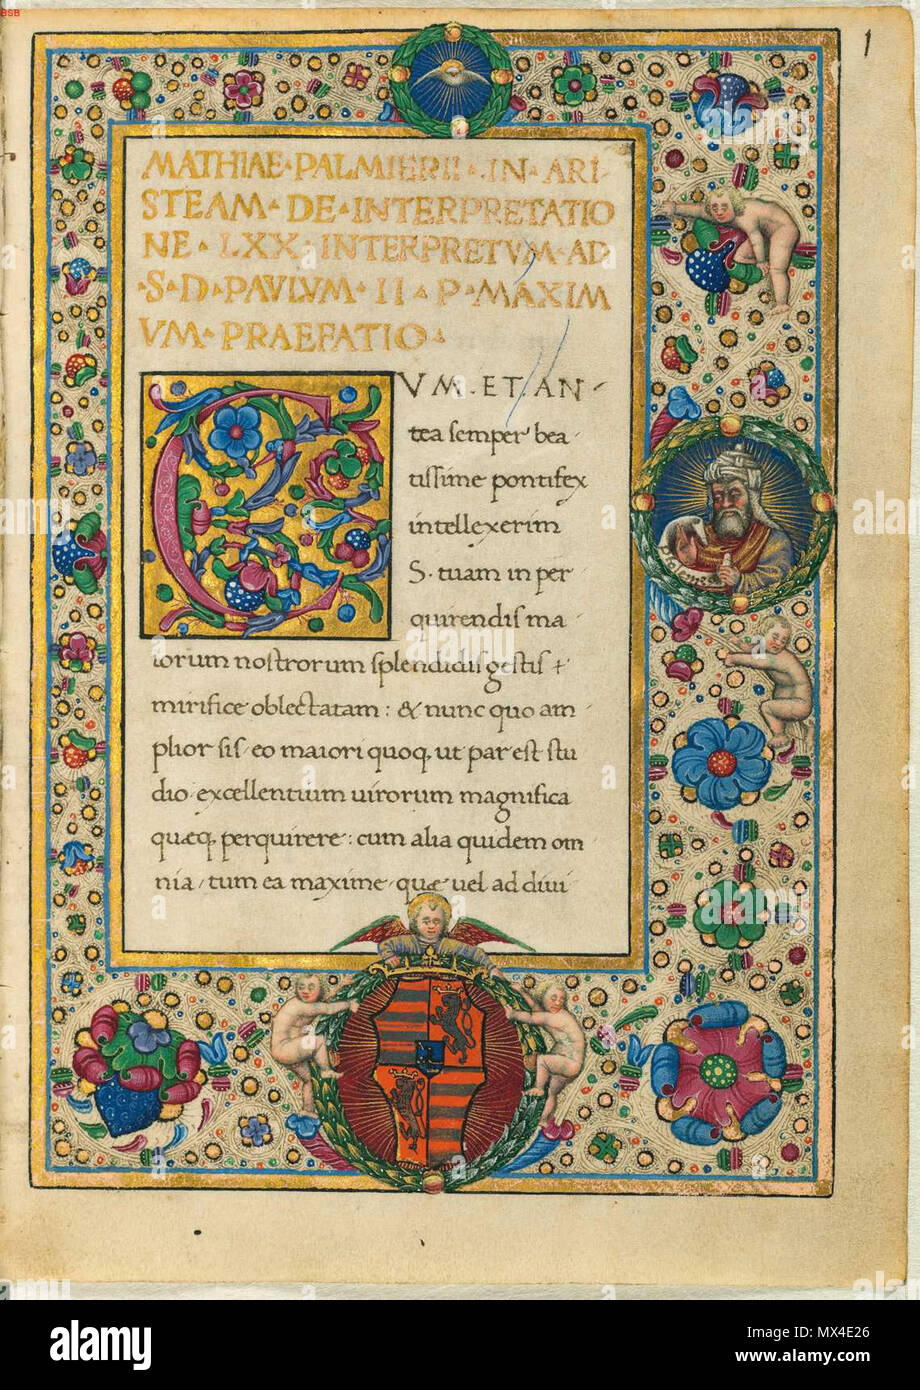 BSB
1
MATHIAE · PALMIERII · IN · ARI
STEAM · DE · INTERPRETATIO
NE · LXX · INTERPRETVM · AD
· S · D · PAVLVM · II · P · MAXIM
VM · PRAEFATIO ·
CVM · ET · AN
tea semper bea
tissime pontifex
intellexerim
S. tuam in per
quirendis ma
iorum nostrorum splendidis gestis +
mirifice oblectatam: & nunc quo am
plior sis eo maiori quoq, ut par est stu
dio excellentium uirorum magnifica
quæq, perquirere: cum alia quidem om
nia / tum ea maxime quæ uel ad diui
a alamy stock photo
alamy
Image ID: MX4E26
www.alamy.com